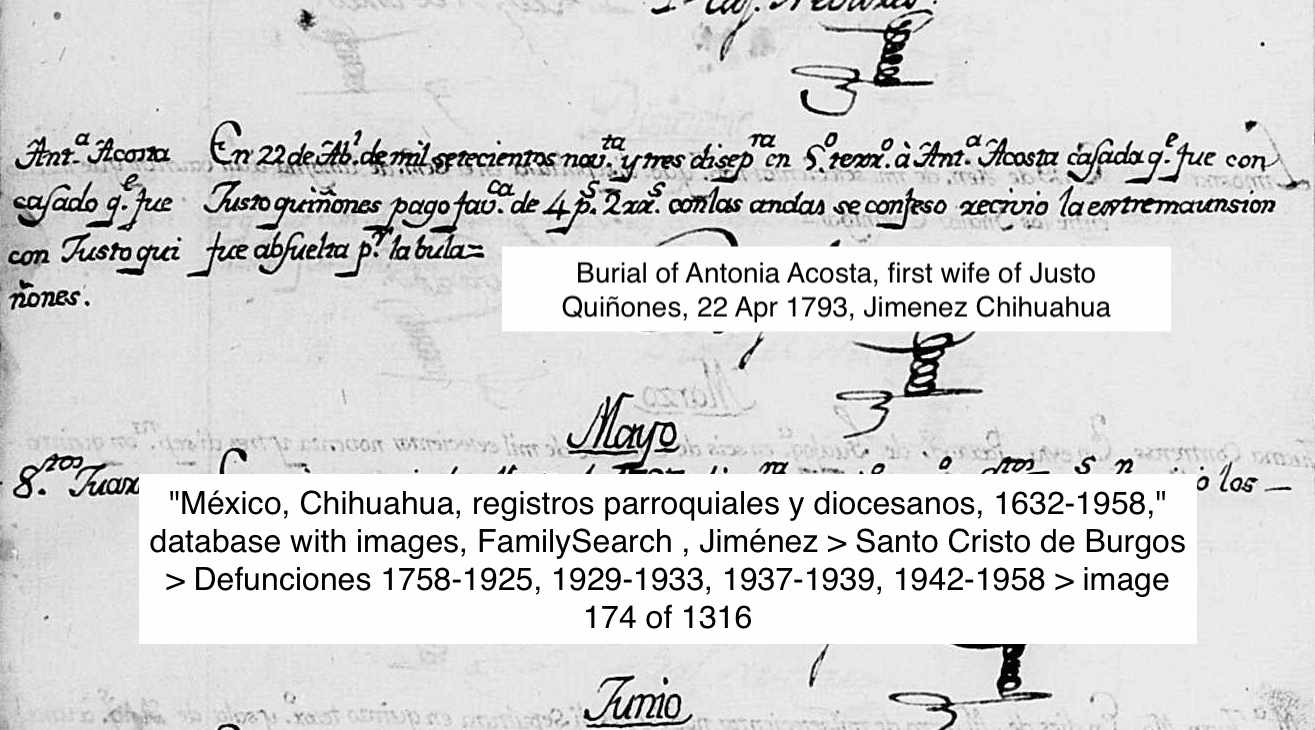 Ant.ª Acosta En 22 de Ab.l de mil setecientos nov.ta y tres di sep.ra en 5.º terx.º à Ant.ª Acosta casada q.e fue con
casado q.e fue Justo quiñones pago fav.ca de 4 p.s 2 xx.s con las andas se confeso recivio la extremaunsion
con Justo qui fue absuelta p.r la bula=
ñones.
Burial of Antonia Acosta, first wife of Justo
Quiñones, 22 Apr 1793, Jimenez Chihuahua
Mayo
8.tos Juan
los
"México, Chihuahua, registros parroquiales y diocesanos, 1632-1958,"
database with images, FamilySearch , Jiménez > Santo Cristo de Burgos
> Defunciones 1758-1925, 1929-1933, 1937-1939, 1942-1958 > image
174 of 1316
Junio